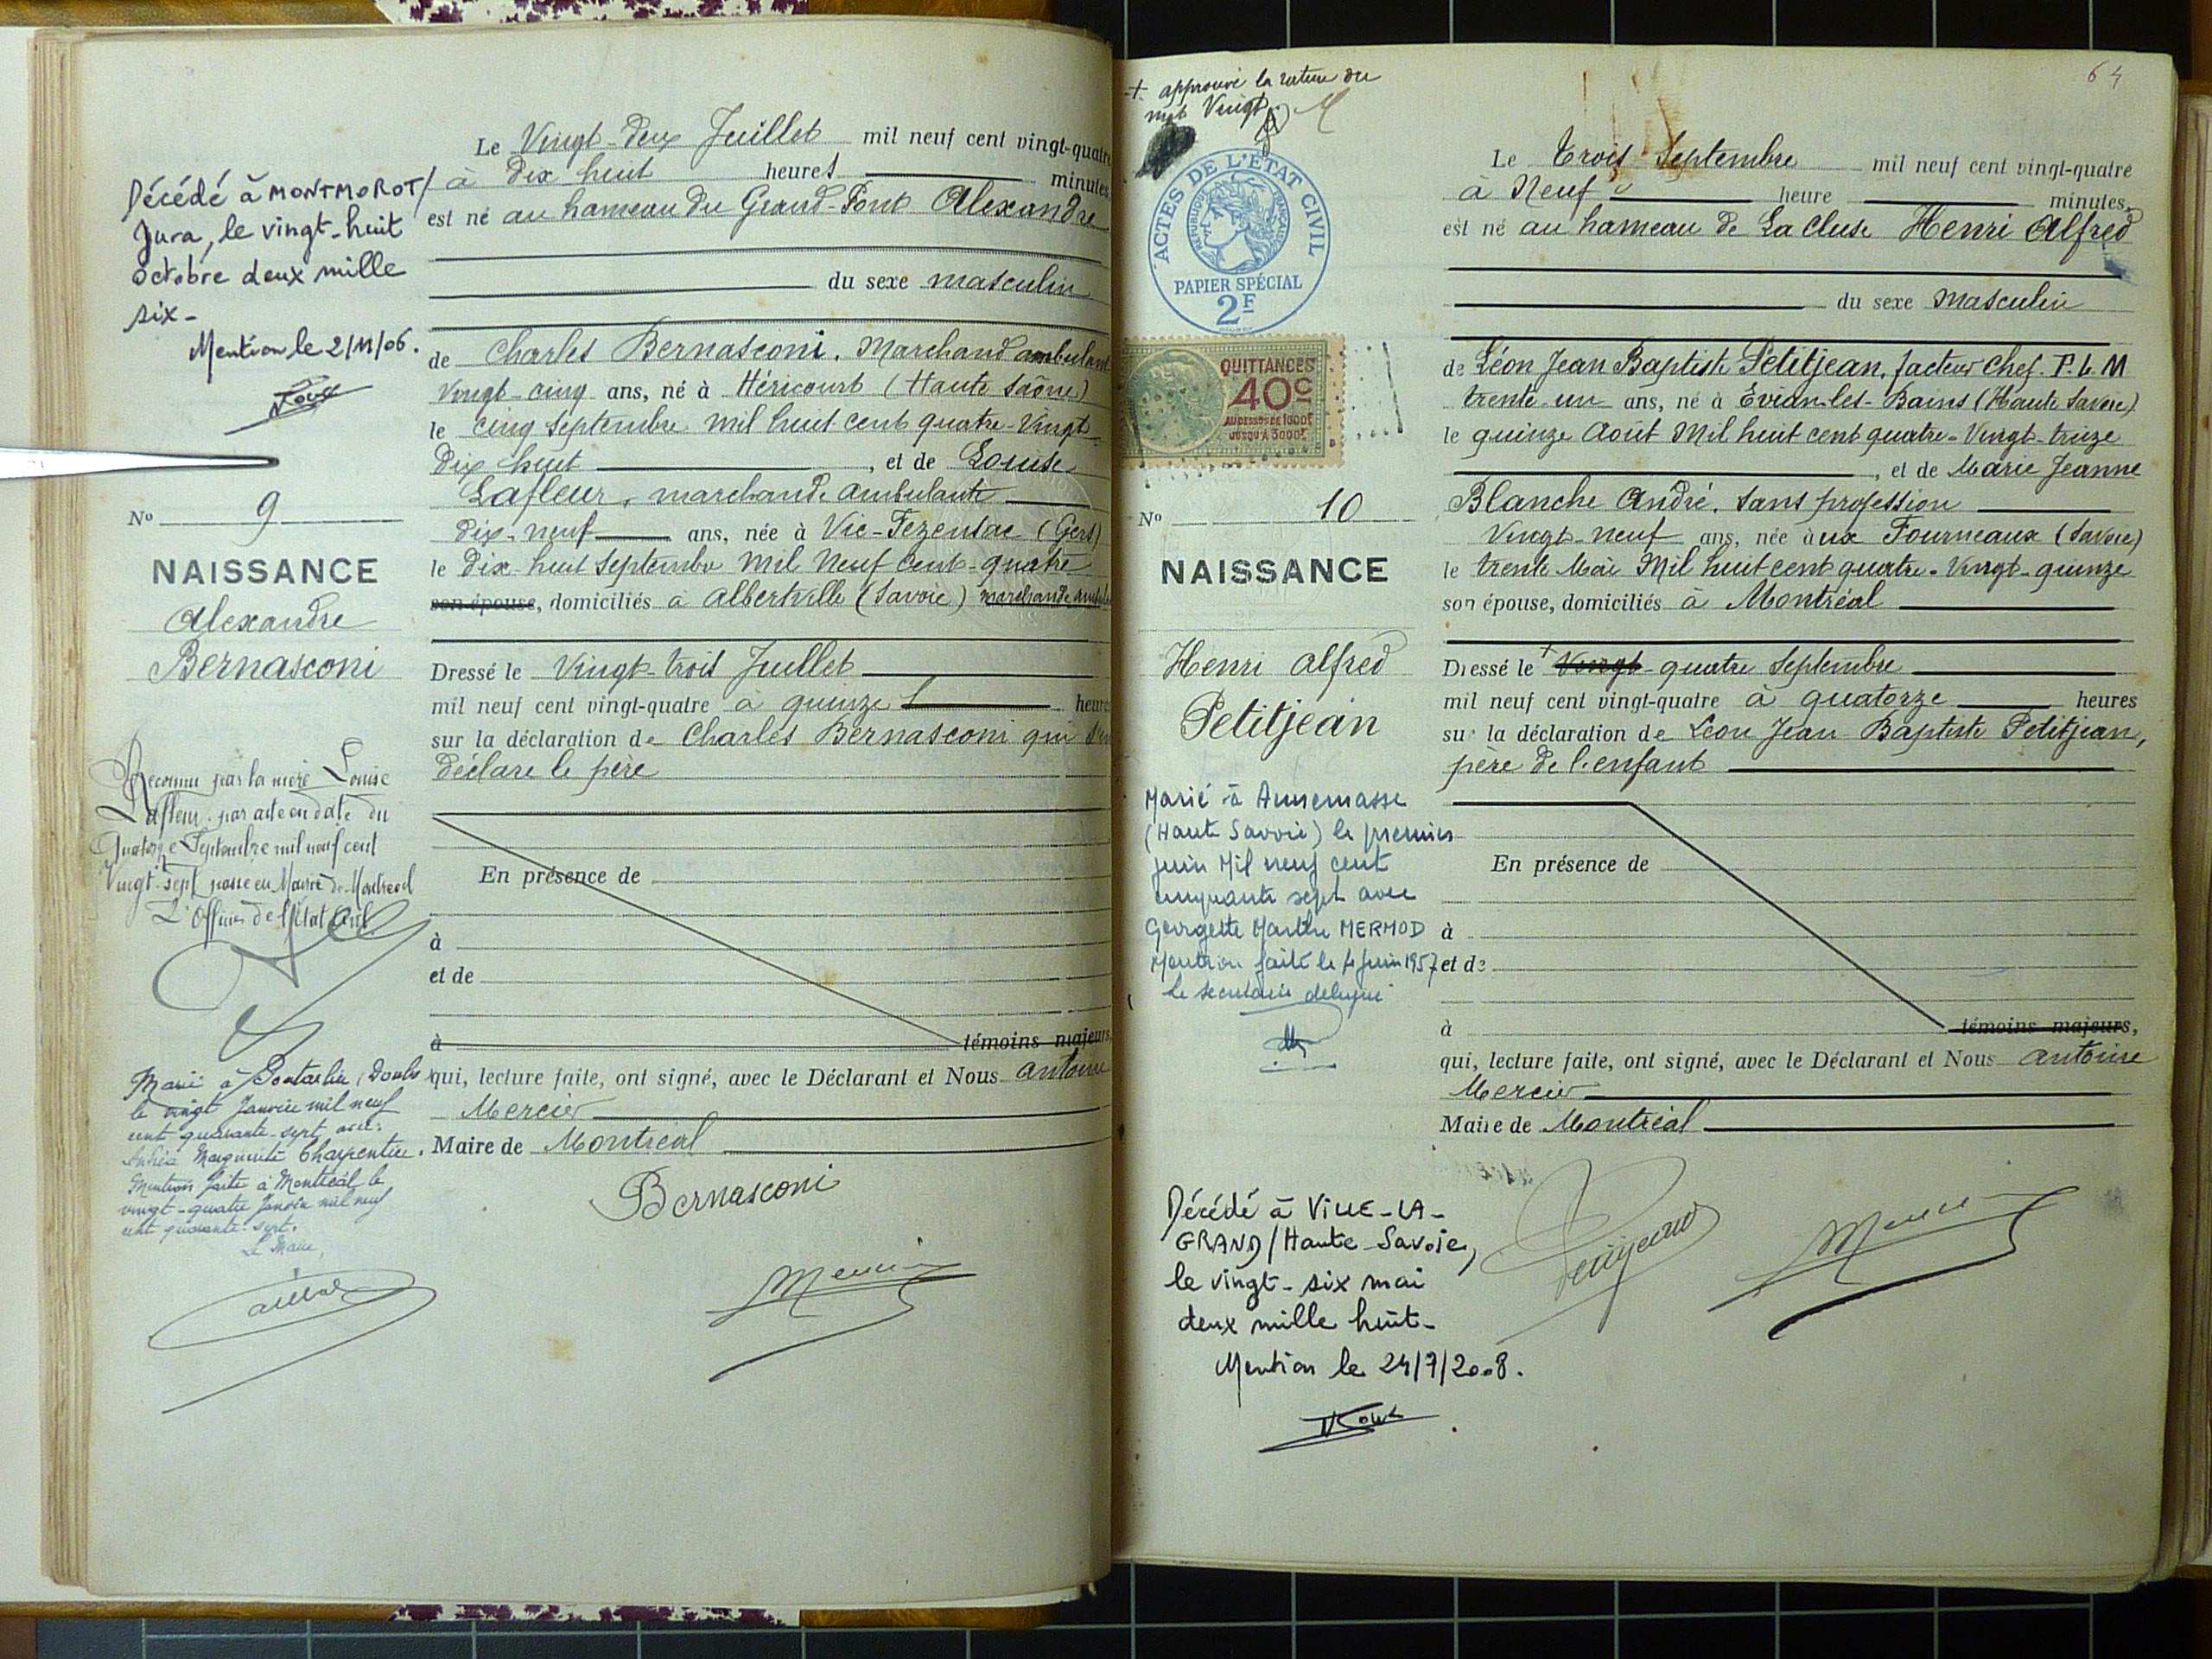 Décédé à MONTMOROT/
Jura, le vingt-huit
octobre deux mille
six-
Mention le 2/11/06.
No 9
NAISSANCE
Alexandre
Bernasconi
Reconnu par la mère Louise
Lafleur par acte en date du
Quatorze Septembre mil neuf cent
Vingt-sept passé en Mairie de Montreal
L'Officier de l'Etat Civil
Marié à Pontarlier (Doubs)
le vingt Janvier mil neuf
cent quarante-sept avec
Andréa Marguerite Charpentier.
Mention faite à Montréal le
vingt-quatre Janvier mil neuf
cent quarante-sept.
Le Maire,
Le Vingt-deux Juillet mil neuf cent vingt-quatre
à Dix huit heures minutes
est né au hameau du Grand-Pont Alexandre
du sexe masculin
de Charles Bernasconi, Marchand ambulant
Vingt-cinq ans, né à Héricourt (Haute Saône)
le cinq Septembre mil huit cent quatre-Vingt
Dix huit, et de Louise
Lafleur, marchande ambulante
dix-neuf ans, née à Vic-Fezensac (Gers)
le Dix huit Septembre Mil Neuf Cent-quatre
son épouse, domiciliés à Albertville (Savoie) marchande
Dressé le Vingt-trois Juillet
mil neuf cent vingt-quatre à quinze heures
sur la déclaration de Charles Bernasconi qui s'en
déclare le père
En présence de
à
et de
à témoins majeurs,
qui, lecture faite, ont signé, avec le Déclarant et Nous Antoine
Mercier
Maire de Montréal
Bernasconi
Mercier
64
+ approuvé la rature du
mot Vingt
ACTES DE L'ÉTAT CIVIL
RÉPUBLIQUE FRANÇAISE
PAPIER SPÉCIAL
2F
QUITTANCES
40c
AU DESSUS DE 1000F
JUSQU'À 3000F
No 10
NAISSANCE
Henri Alfred
Petitjean
Marié à Annemasse
(Haute Savoie) le premier
juin Mil neuf cent
cinquante sept avec
Georgette Marthe MERMOD
Mention faite le 4 juin 1957
Le secrétaire délégué
Décédé à VILLE-LA-
GRAND/Haute-Savoie,
le vingt-six mai
deux mille huit-
Mention le 24/7/2008.
Le Trois Septembre mil neuf cent vingt-quatre
à Neuf heure minutes,
est né au hameau de La Cluse Henri Alfred
du sexe Masculin
de Léon Jean Baptiste Petitjean, facteur chef P.L.M
trente-un ans, né à Evian-les-Bains (Haute Savoie)
le quinze Août Mil huit cent quatre-Vingt-treize
, et de Marie Jeanne
Blanche André, sans profession
Vingt-neuf ans, née aux Fourneaux (Savoie)
le trente Mai Mil huit cent quatre-Vingt-quinze
son épouse, domiciliés à Montréal
Dressé le + Vingt-quatre Septembre
mil neuf cent vingt-quatre à quatorze heures
sur la déclaration de Léon Jean Baptiste Petitjean,
père de l'enfant
En présence de
à
et de
à témoins majeurs,
qui, lecture faite, ont signé, avec le Déclarant et Nous Antoine
Mercier
Maire de Montréal
Petitjean
Mercier